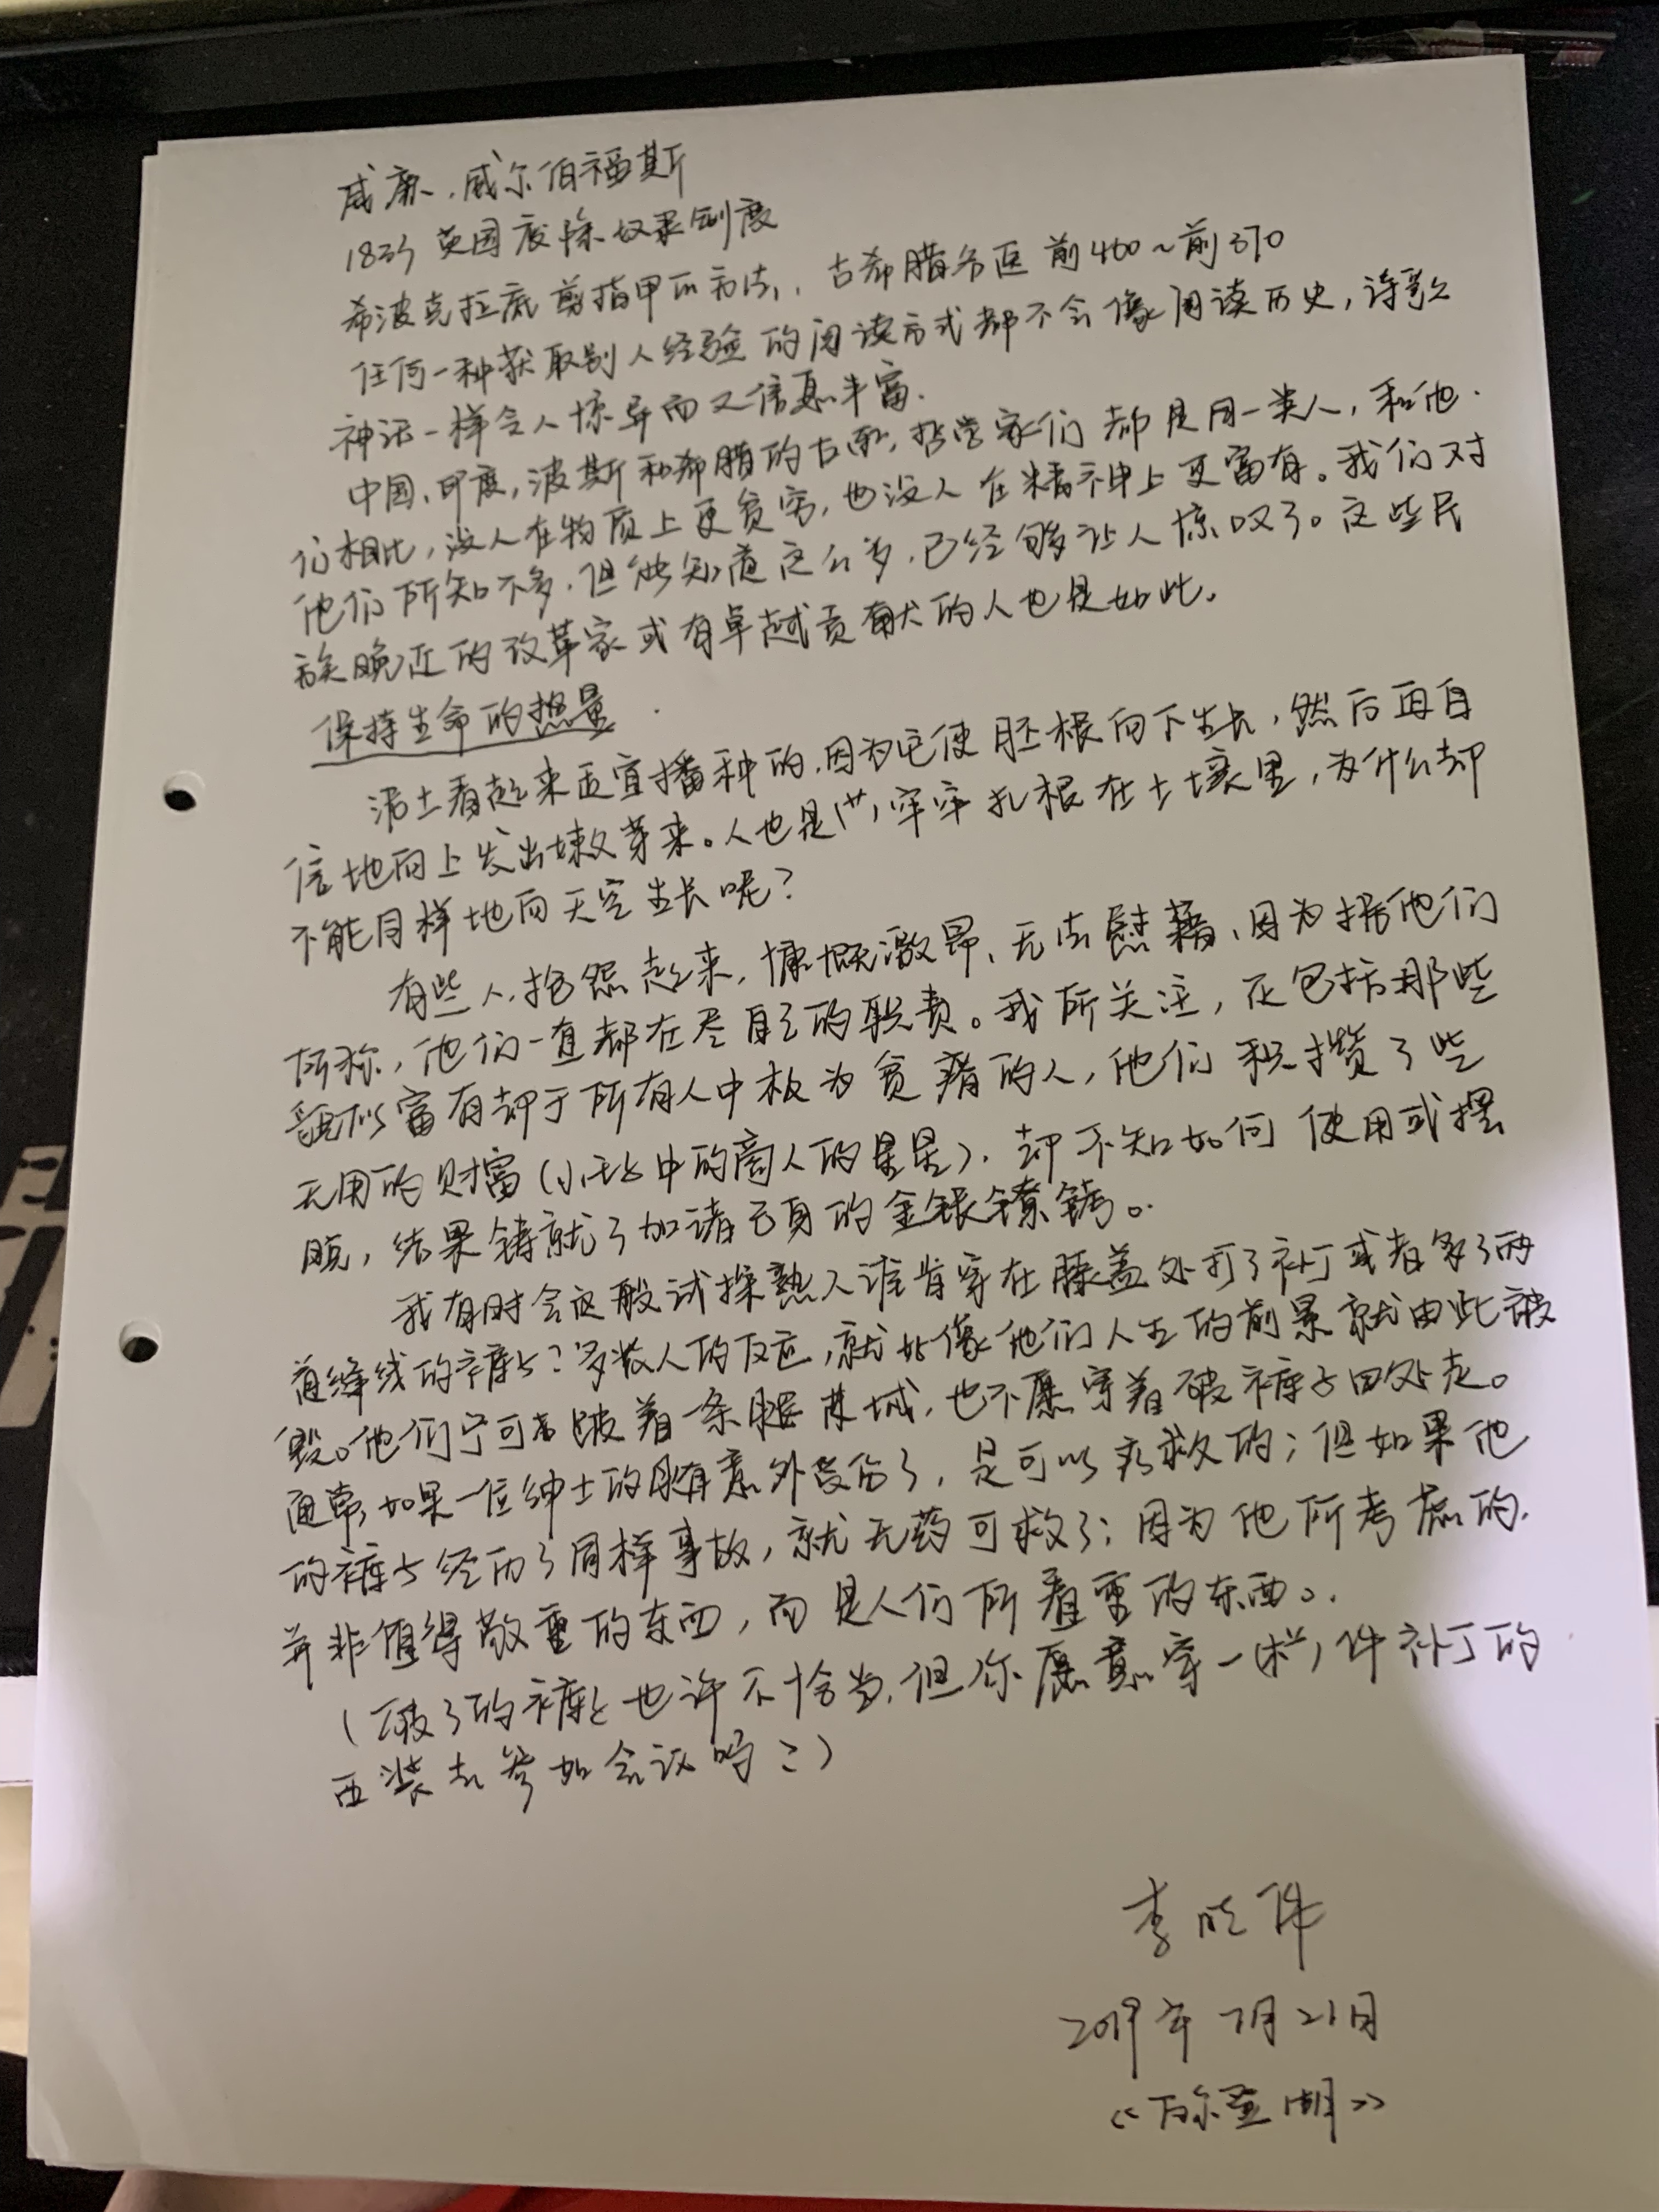 威廉.威尔伯福斯
1833 英国废除奴隶制度
希波克拉底剪指甲的方法,古希腊名医 前460~前370
任何一种获取别人经验的阅读方式都不会像阅读历史,诗歌
神话一样令人惊异而又信息丰富.
中国、印度,波斯和希腊的古 哲学家们都是同一类人,和他
们相比,没人在物质上更贫穷,也没人在精神上更富有。我们对
他们所知不多.但能知道这么多,已经够让人惊叹了。这些民
族晚近的改革家或有卓越贡献的人也是如此。
保持生命的热量
泥土看起来适宜播种的,因为它使胚根向下生长,然后再自
信地向上发出嫩芽来。人也是 牢牢扎根在土壤里,为什么却
不能同样地向天空生长呢?
有些人,抱怨起来,慷慨激昂、无法慰藉、因为据他们
所称,他们一直都在尽自己的职责。我所关注,还包括那些
貌似富有却于所有人中极为贫瘠的人,他们积攒了些
无用的财富(小王子中的商人的星星),却不知如何使用或摆
脱,结果铸就了加诸己身的金银镣铐。
我有时会这般试探熟人谁肯穿在膝盖处打了补丁或者多了两
道缝线的裤子?多数人的反应,就好像他们人生的前景就由此被
毁。他们宁可 跛着一条腿 城,也不愿穿着破裤子四处走。
通常,如果一位绅士的腿意外受伤了,是可以疗救的;但如果他
的裤子经历了同样事故,就无药可救了;因为他所考虑的.
并非值得敬重的东西,而是人们所看重的东西。
(破了的裤子也许不恰当,但你愿意穿一 件补丁的
西装去参加会议吗?)
李晓伟
2019年7月21日
《瓦尔登湖》